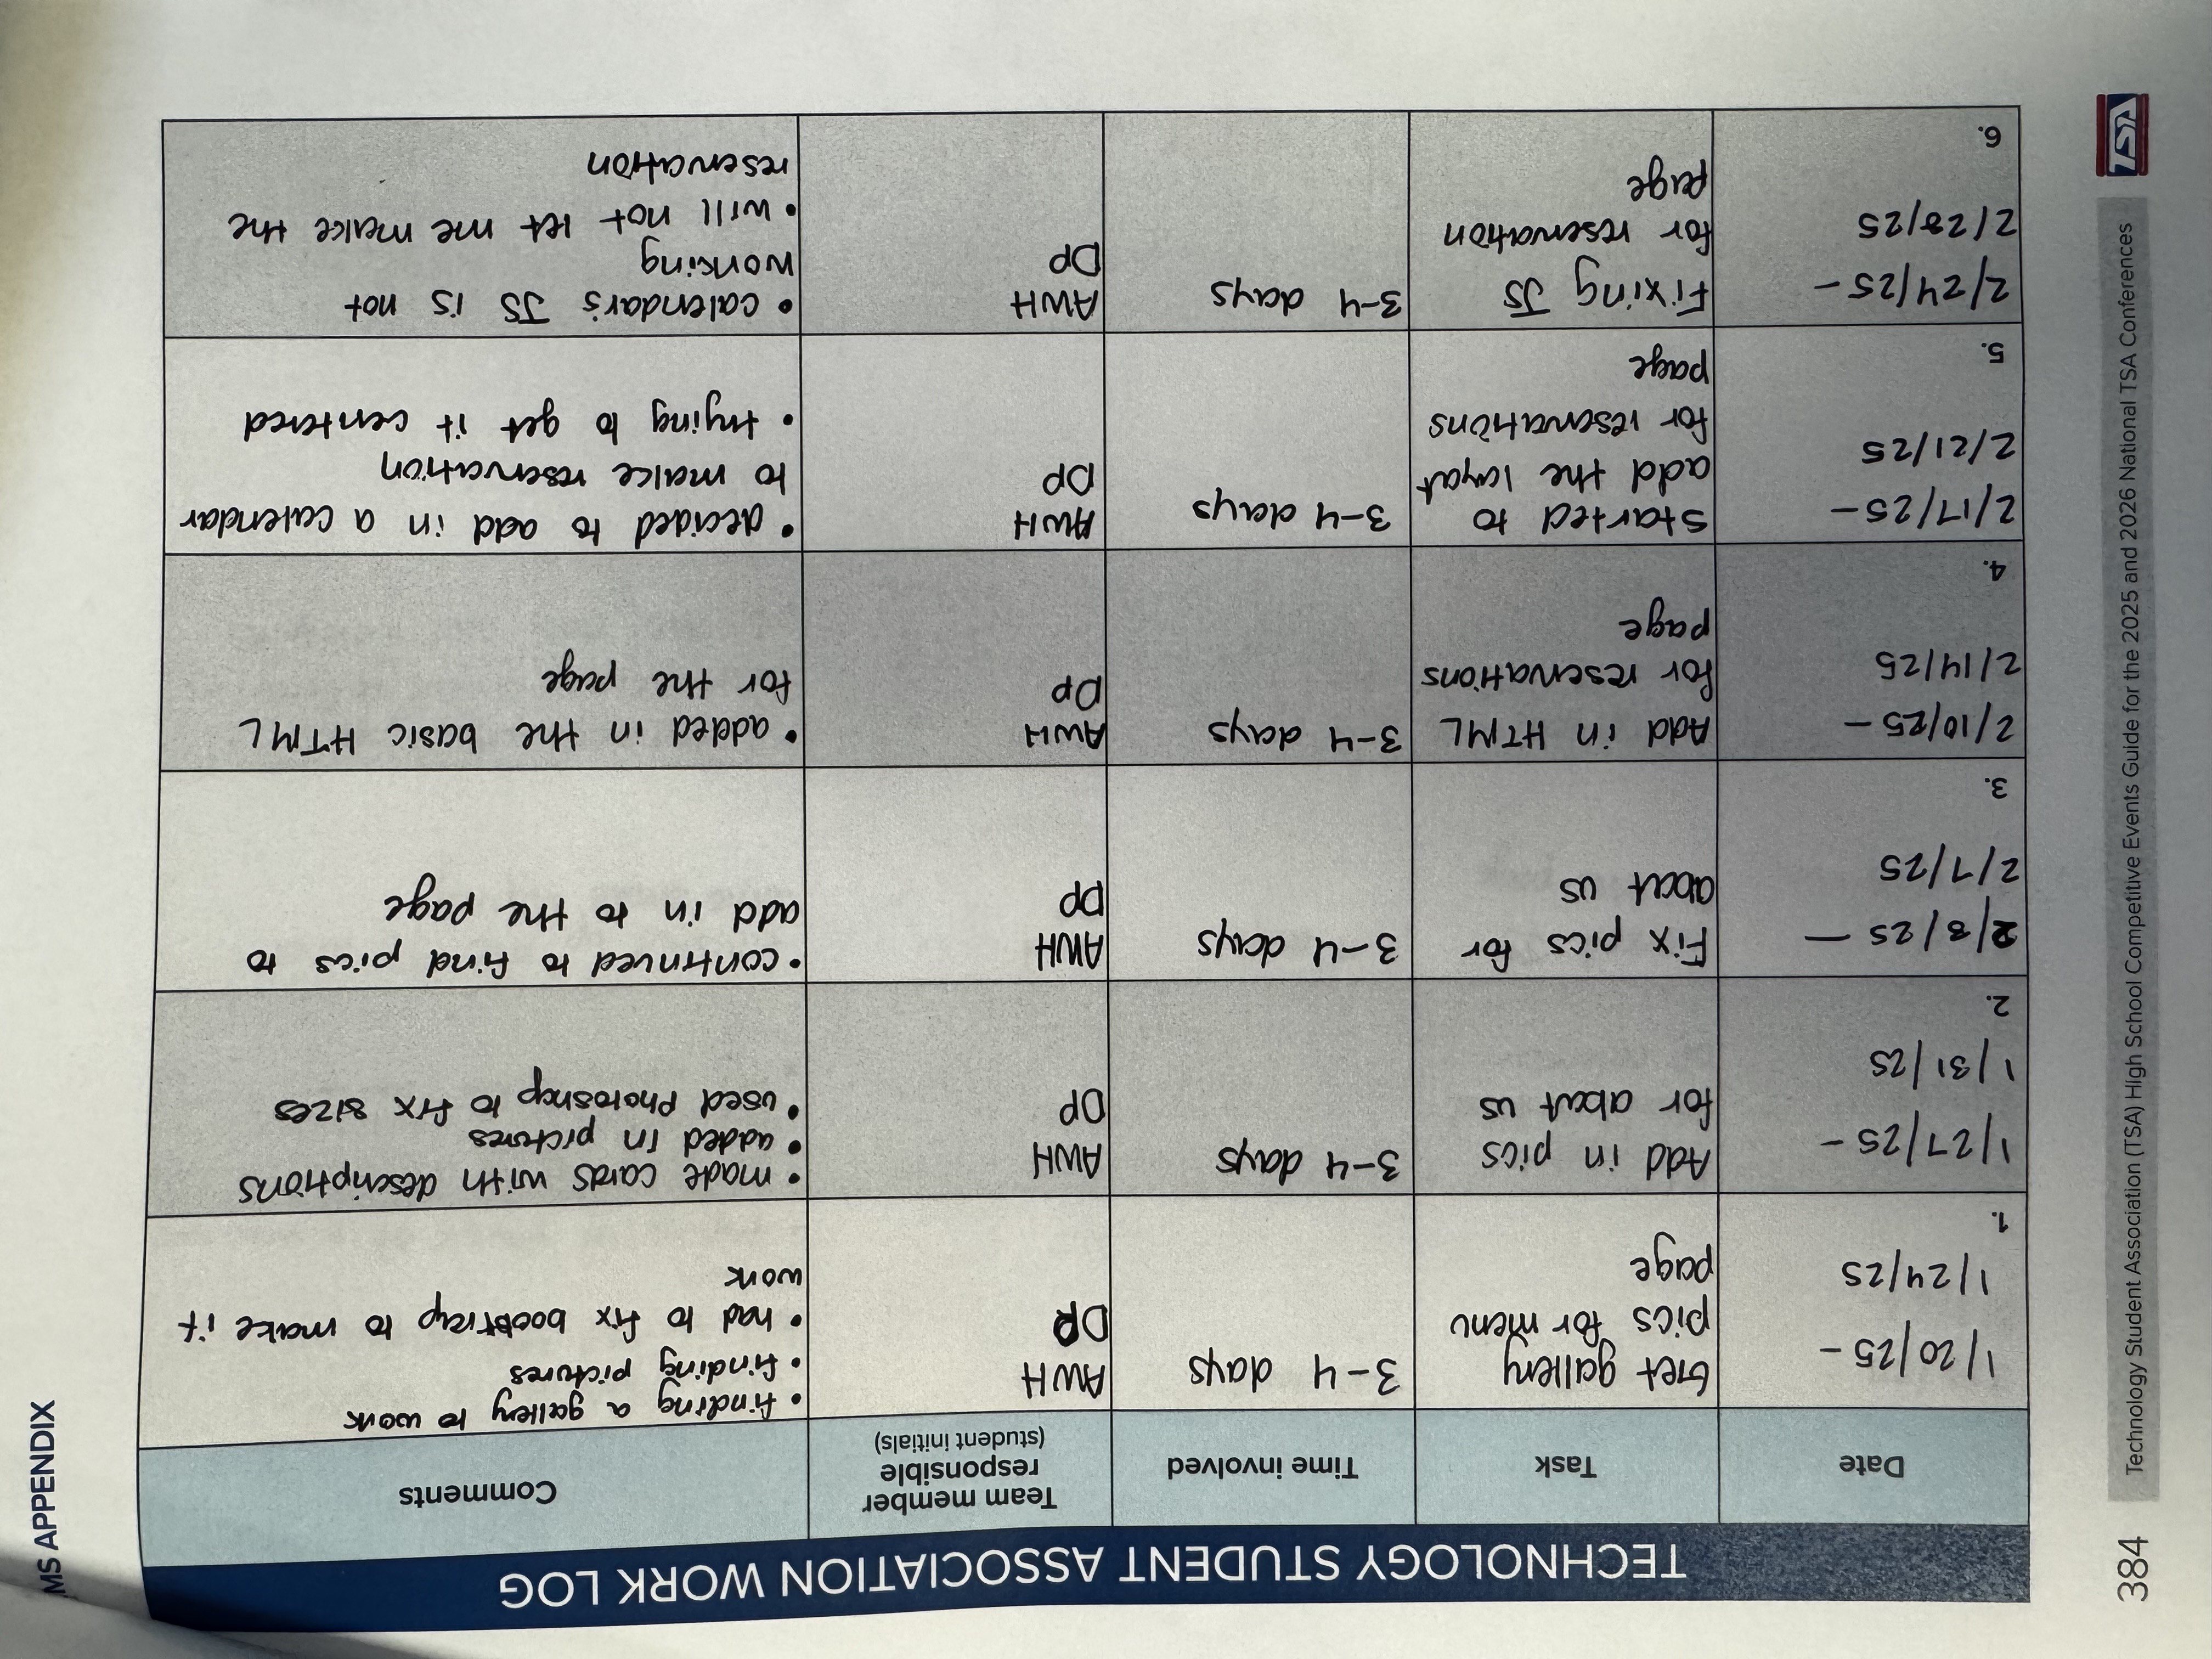 MS APPENDIX
TECHNOLOGY STUDENT ASSOCIATION WORK LOG
Date
Task
Time involved
Team member
responsible
(student initials)
Comments
1/20/25 –
1/24/25
1.
Get gallery
pics for menu
page
3-4 days
AWH
DP
• finding a gallery to work
• finding pictures
• had to fix bootstrap to make it
work
1/27/25 –
1/31/25
2.
Add in pics
for about us
3-4 days
AWH
DP
• made cards with descriptions
• added in pictures
• used Photoshop to fix sizes
2/3/25 –
2/7/25
3.
Fix pics for
about us
3-4 days
AWH
DP
• continued to find pics to
add in to the page
2/10/25 –
2/14/25
4.
Add in HTML
for reservations
page
3-4 days
AWH
DP
• added in the basic HTML
for the page
2/17/25 –
2/21/25
5.
Started to
add the layout
for reservations
page
3-4 days
AWH
DP
• decided to add in a calendar
to make reservation
• trying to get it centered
2/24/25 –
2/28/25
6.
Fixing JS
for reservation
page
3-4 days
AWH
DP
• calendar's JS is not
working
• will not let me make the
reservation
384
Technology Student Association (TSA) High School Competitive Events Guide for the 2025 and 2026 National TSA Conferences
TSA